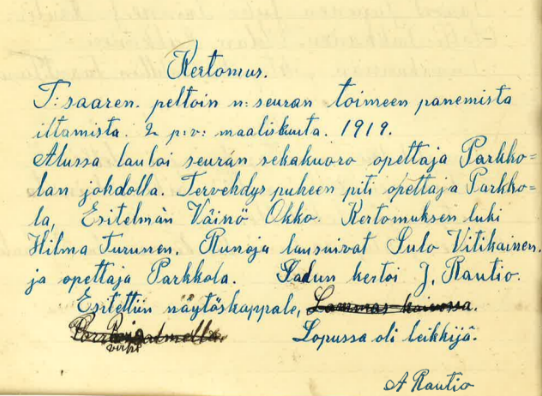 Kertomus.
T:saaren. peltoin n:seuran toimeen panemista
iltamista. 2 p:v: maaliskuuta. 1919.
Alussa lauloi seuran sekakuoro opettaja Parkko-
lan johdolla. Tervehdys puheen piti opettaja Parkko-
la, Esitelmän Väinö Okko. Kertomuksen luki
Hilma Turunen. Runoja lausuivat Sulo Vitikainen.
ja opettaja Parkkola. Sadun kertoi J. Rautio.
Esitettiin näytöskappale, Lammas kaivossa.
Lopussa oli leikkijä.
A Rautio